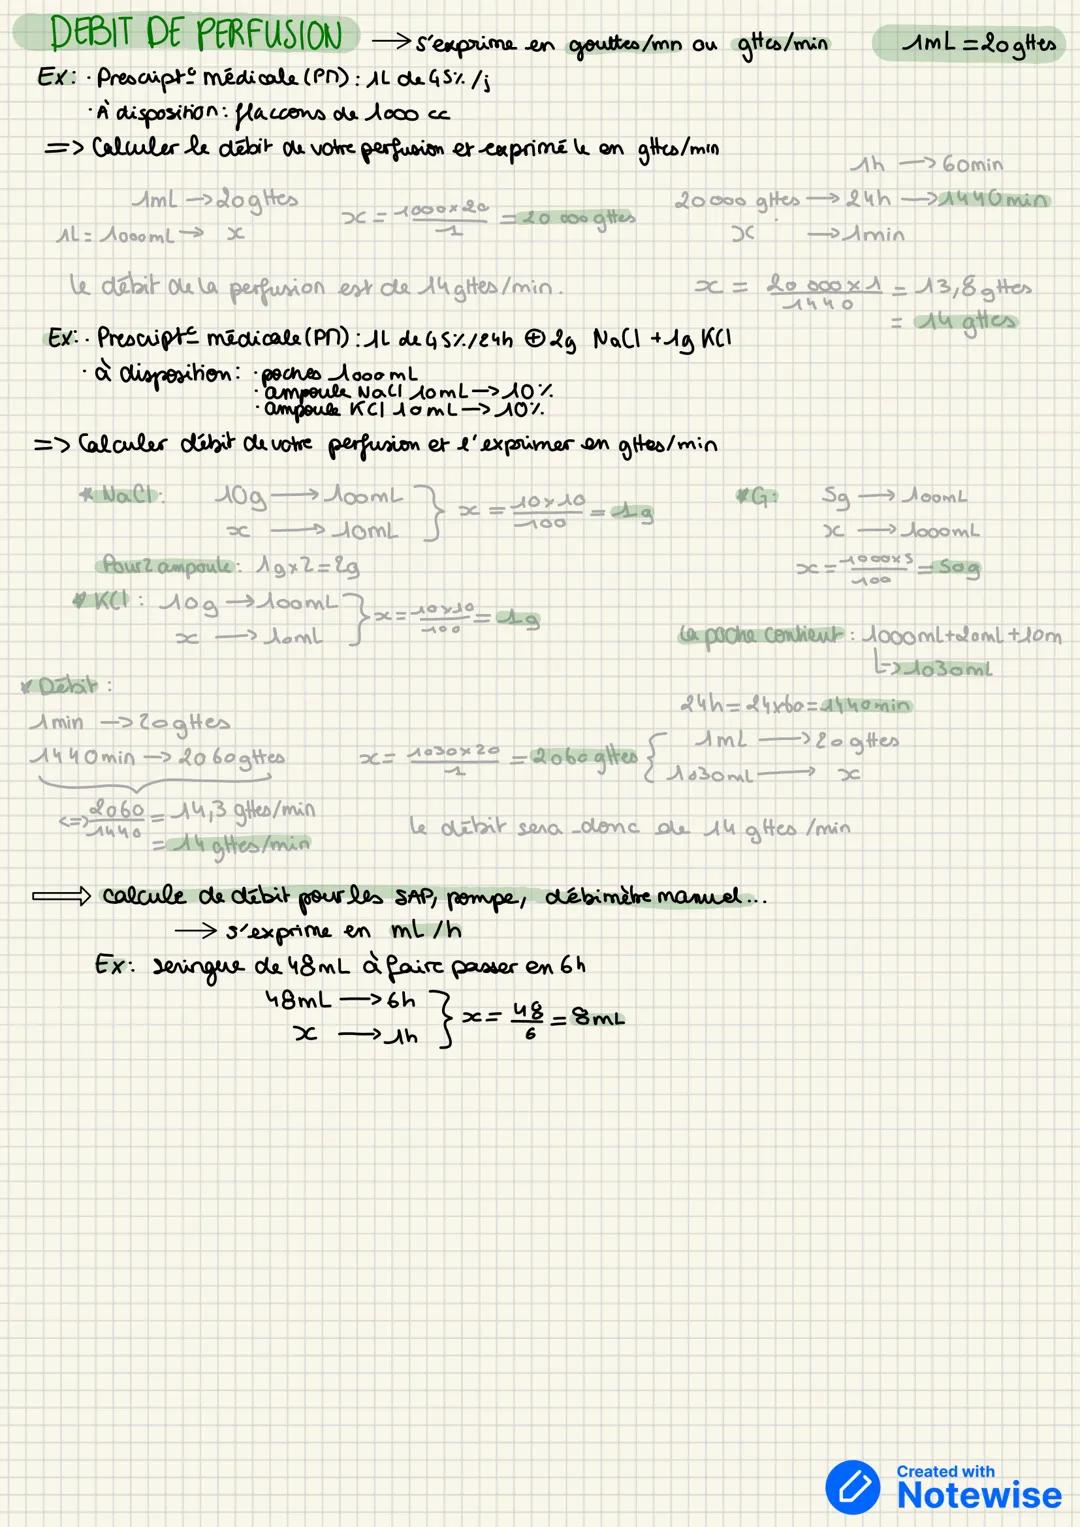 DEBIT DE PERFUSION → s'exprime en gouttes/mn ou gttes/min 1mL = 20 gttes
Ex: · Prescript° médicale (PM) : 1L de G5% /j
· À disposition : flaccons de 1000 cc
=> Calculer le débit de votre perfusion et exprimé le en gttes/min
1h → 60min
1mL → 20 gttes
1L = 1000mL → x
x = 1000×20 / 1 = 20 000 gttes
20 000 gttes → 24h → 1440 min
x → 1min
le débit de la perfusion est de 14 gttes/min.
x = 20 000 × 1 / 1440 = 13,8 gttes
= 14 gttes
Ex: · Prescript° médicale (PM) : 1L de G5%/24h ⊕ 2g NaCl + 1g KCl
· à disposition : · poches 1000 mL
· ampoule NaCl 10mL → 10%
· ampoule KCl 10mL → 10%
=> Calculer débit de votre perfusion et l'exprimer en gttes/min
* NaCl : 10g → 100mL
x → 10mL
x = 10×10 / 100 = 1g
Pour 2 ampoule : 1g×2 = 2g
* KCl : 10g → 100mL
x → 10mL
x = 10×10 / 100 = 1g
* G : 5g → 100mL
x → 1000mL
x = 1000×5 / 100 = 50g
la poche contient : 1000ml+20mL+10m
↳ 1030mL
24h = 24×60 = 1440min
1mL → 20 gttes
1030mL → x
x = 1030×20 / 1 = 2060 gttes
* Débit :
1min → 20 gttes
1440min → 2060 gttes
<=> 2060 / 1440 = 14,3 gttes/min
= 14 gttes/min
le débit sera donc de 14 gttes /min
⟹ calcule de débit pour les SAP, pompe, débimètre manuel...
→ s'exprime en mL/h
Ex: seringue de 48mL à faire passer en 6h
48mL → 6h
x → 1h
x = 48 / 6 = 8mL
Created with
Notewise